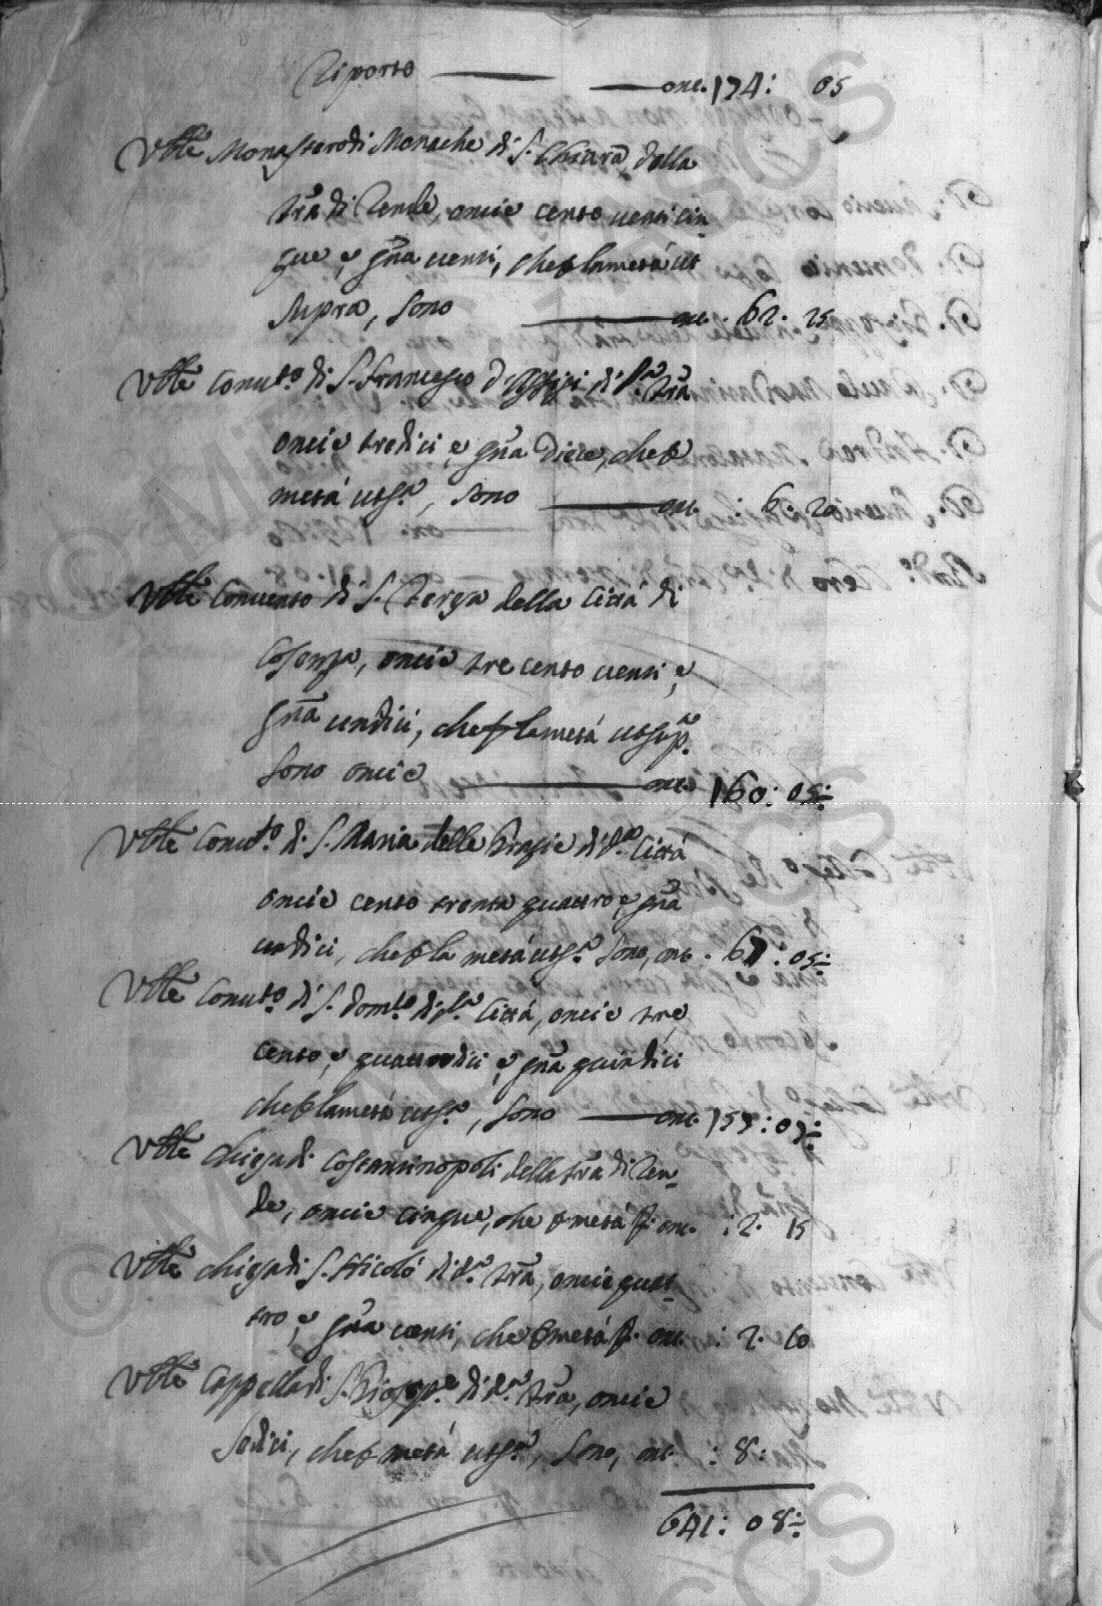 Riporto — onc. 174: 05
Vñle Monastero di Monache di S. Chiara della
trã di Rende, oncie cento venticin-
que, e gña venti, che p la metà ut
supra, sono — onc. 62. 25
Vñle Convto. di S. Francesco d'Assisi di da. trã
oncie tredici, e gña diece, che p
metà utsa., sono — onc. : 6: 20
Vñle Convento di S. Teresa della Città di
Cosenza, oncie tre cento venti, e
gña undici, che p la metà utsup.
sono oncie — onc. 160: 05:
Vñle Convto. di S. Maria delle Grazie di da. Città
oncie cento trenta quattro, e gña
undici, che p la metà utsa. sono, onc. 67: 05:
Vñle Convto. di S. Domco. di da. Città, oncie tre
cento, e quattordici, e gña quindici
che p la metà utsa., sono — onc. 157: 07:
Vñle Chiesa di Costantinopoli della trã di Ren-
de, oncie cinque, che p metà s. onc. : 2. 15
Vñle Chiesa di S. Nicolò di da. trã, oncie quat-
tro, e gña venti, che p metà s. onc. : 2. 10
Vñle Cappella di S. Giosppe. di da. trã, oncie
sedici, che p metà utsa., sono, onc. : 8:
641: 08:
© ASCS